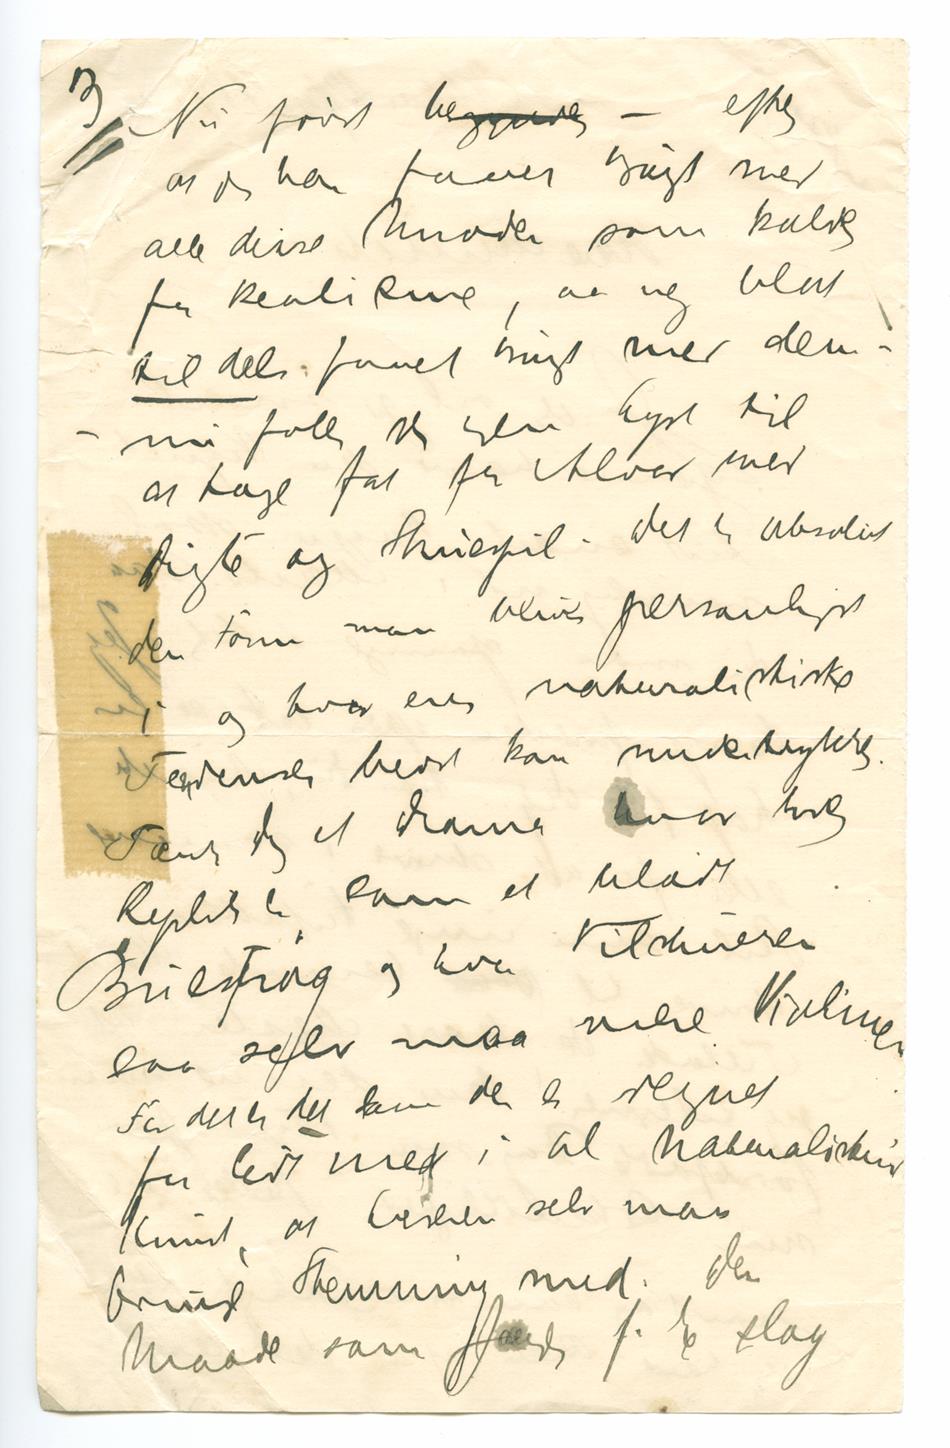 3
Nu først begynder – efter
at jeg har faaet brugt med
alle disse som kaldes
for Realisme, aa jeg blot
til dels faaet brugt med dem –
– nu faller der igen Lyst til
at tage fat for Alvor med
Digte og Skuespil. Det er absolut
den Form man bliver personligst
i og hvor ens naturalistiske
Tendenser bedst kan
Tænk dig et drama hvor hver
Replik er som et blødt
Buestrøg og hvor Tilskueren
saa selv maa være Violinen
For det er det som der er regnet
for lidt med i al Naturalistisk
Kunst, at Læseren selv maa
bringe Stemning med. Den
Maade som for slag